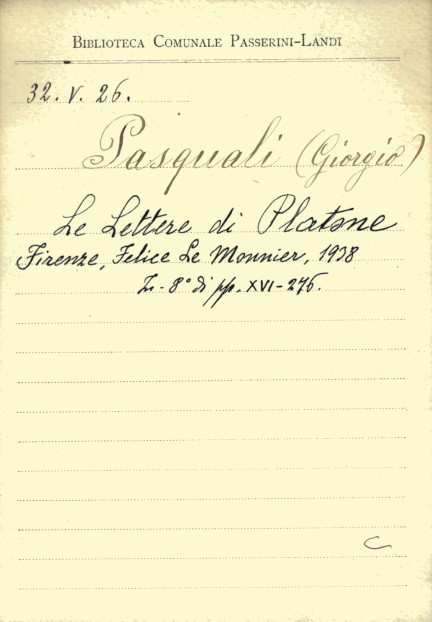 BIBLIOTECA COMUNALE PASSERINI-LANDI
32. V. 26.
Pasquali (Giorgio)
Le Lettere di Platone
Firenze, Felice Le Monnier, 1938
In-8° di pp. XVI-276.
C